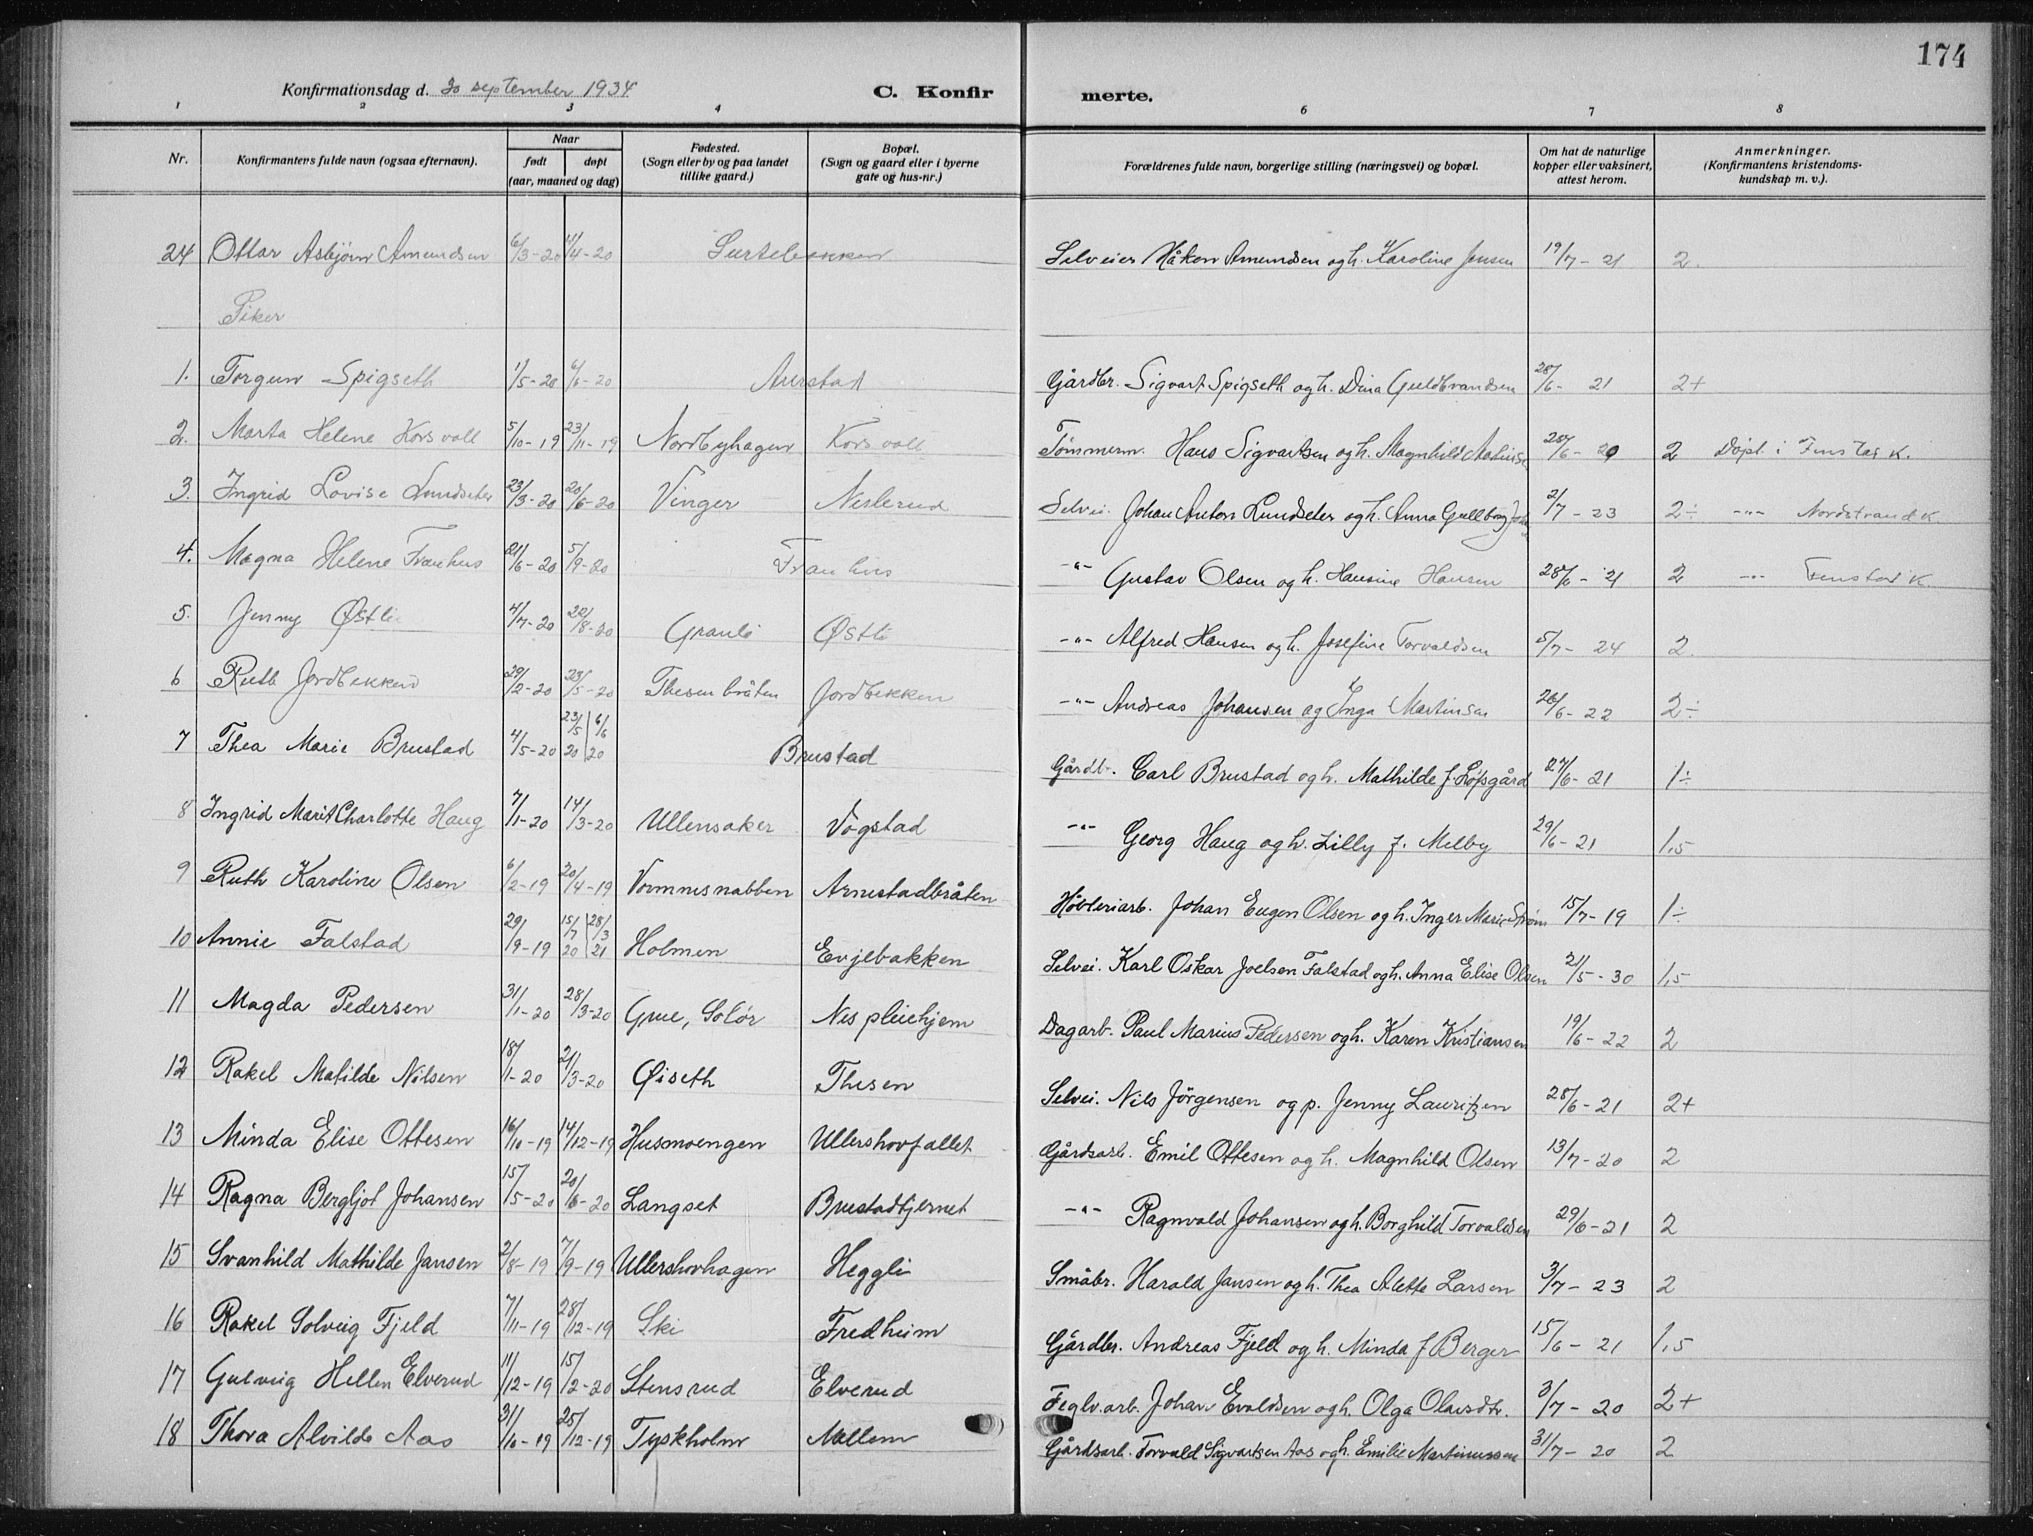 174
Konfirmationsdag d. 30 september 1934
C. Konfir
merte.
1 2 3 4 6 7 8
Nr.
Konfirmantens fulde navn (ogsaa efternavn).
Naar
født døpt
(aar, maaned og dag)
Fødested.
(Sogn eller by og paa landet
tillike gaard.)
Bopæl.
(Sogn og gaard eller i byerne
gate og hus-nr.)
Forældrenes fulde navn, borgerlige stilling (næringsvei) og bopæl.
Om hat de naturlige
kopper eller vaksinert,
attest herom.
Anmerkninger.
(Konfirmantens kristendoms-
kundskap m. v.).
24 Ottar Asbjørn Amundsen 6/3-20 4/4-20 Surtebakken Selveier Håkon Amundsen og h. Karoline Jensen 19/7-21 2.
Piker
1. Torgun Spigseth 1/5-20 6/6-20 Aurstad Gårdbr. Sigvart Spigseth og h. Dina Guldbrandsen 28/6-21 2+
2. Marta Helene Korsvoll 5/10-19 23/11-19 Nordbyhagen Korsvoll Tömmerm. Hans Sigvartsen og h. Magnhild 28/6-20 2 Döpt i Fenstad K.
3. Ingrid Lovise Lundseter 23/3-20 20/6-20 Vinger Neslerud Selvei. Johan Anton Lundseter og h. Anna Gullborg 2/7-23 2÷ -"- Nordstrand K
4. Magna Helene Franhus 21/6-20 5/9-20 Franhus -"- Gustav Olsen og h. Hansine Hansen 28/6-21 2 -"- Fenstad K
5. Jenny Østli 4/7-20 22/8-20 Granli Østli -"- Alfred Hansen og h. Josefine Torvaldsen 5/7-24 2.
6 Ruth Jordbekken 29/2-20 23/5-20 Thesenbråten Jordbekken -"- Andreas Johansen og Inga Martinsen 26/6-22 2÷
7 Thea Marie Brustad 4/5-20 23/5 20 | 6/6 20 Brustad Gårdbr. Carl Brustad og h. Mathilde f. Löpsgård 27/6-21 1÷
8 Ingrid Marit Charlotte Haug 7/1-20 14/3-20 Ullensaker Vogstad -"- Georg Haug og h. Lilly f. Melby 29/6-21 1,5
9 Ruth Karoline Olsen 6/2-19 20/4-19 Vormnesnabben Arnestadbråten Höbleriarb. Johan Eugen Olsen og h. Inger Marie Ström 15/7-19 1÷
10 Annie Falstad 29/9-19 15/7 20 | 28/3 21 Holmen Evjebakken Selvei. Karl Oskar Joelsen Falstad og h. Anna Elise Olsen 21/5-30 1,5
11 Magda Pedersen 31/1-20 28/3-20 Grue, Solör Nes pleiehjem Dagarb. Paul Marius Pedersen og h. Karen Kristiansen 19/6-22 2
12 Rakel Matilde Nilsen 18/1-20 21/3-20 Øiseth Thesen Selvei. Nils Jörgensen og p. Jenny Lauritzen 28/6-21 2+
13 Minda Elise Ottesen 16/10-19 14/12-19 Husmoengen Ullershovfallet Gårdsarb. Emil Ottesen og h. Magnhild Olsen 13/7-20 2
14 Ragna Bergljot Johansen 15/5-20 20/6-20 Langset Brustadtjernet -"- Ragnvald Johansen og h. Borghild Torvaldsen 29/6-21 2
15 Svanhild Mathilde Jansen 2/8-19 7/9-19 Ullershovhagen Heggli Småbr. Harald Jansen og h. Thea Alette Larsen 3/7-23 2
16 Rakel Solveig Fjeld 7/11-19 28/12-19 Ski Fredheim Gårdbr. Andreas Fjeld og h. Minda f Berger 15/6-21 1,5
17 Gulveig Hellen Elverud 11/12-19 15/2-20 Stensrud Elverud Teglv.arb. Johan Evaldsen og h. Olga Olausdtr. 3/7-20 2+
18 Thora Alvilde Aas 31/10-19 25/12-19 Tyskholm Mellem Gårdsarb. Torvald Sigvartsen Aas og h. Emilie Martinussen 31/7-20 2